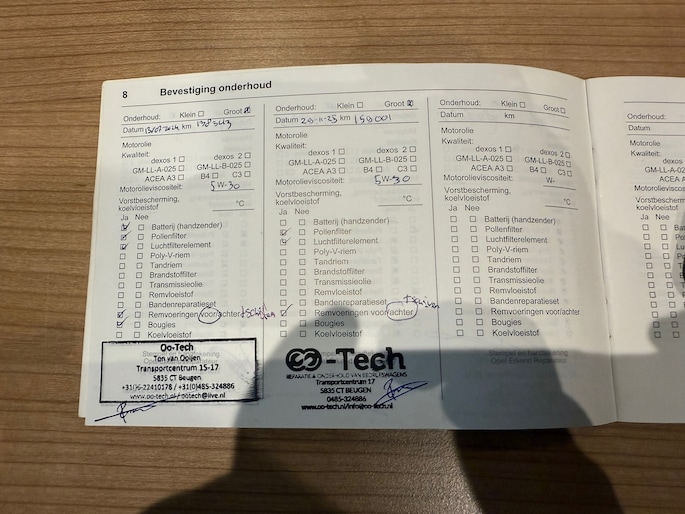 8 Bevestiging onderhoud
Onderhoud: Klein ☐ Groot ☒
Datum 13/07-2024 km 138543
Motorolie
Kwaliteit:
dexos 1 ☐ dexos 2 ☐
GM-LL-A-025 ☐ GM-LL-B-025 ☐
ACEA A3 ☐ B4 ☐ C3 ☐
Motorolieviscositeit:
5W-30
Vorstbescherming,
koelvloeistof °C
Ja Nee
☑ ☐ Batterij (handzender)
☑ ☐ Pollenfilter
☑ ☐ Luchtfilterelement
☐ ☐ Poly-V-riem
☐ ☐ Tandriem
☐ ☐ Brandstoffilter
☐ ☐ Transmissieolie
☐ ☐ Remvloeistof
☐ ☐ Bandenreparatieset
☑ ☐ Remvoeringen voor/achter +schijven
☑ ☐ Bougies
☐ ☐ Koelvloeistof
Oo-Tech
Ton van Ooijen
Transportcentrum 15-17
5835 CT Beugen
+31(0)6-22410178 / +31(0)485-324886
www.oo-tech.nl / ootech@live.nl
Onderhoud: Klein ☐ Groot ☒
Datum 20-11-25 km 159001
Motorolie
Kwaliteit:
dexos 1 ☐ dexos 2 ☐
GM-LL-A-025 ☐ GM-LL-B-025 ☐
ACEA A3 ☐ B4 ☐ C3 ☐
Motorolieviscositeit:
5W-30
Vorstbescherming,
koelvloeistof °C
Ja Nee
☐ ☐ Batterij (handzender)
☑ ☐ Pollenfilter
☑ ☐ Luchtfilterelement
☐ ☐ Poly-V-riem
☐ ☐ Tandriem
☐ ☐ Brandstoffilter
☐ ☐ Transmissieolie
☐ ☐ Remvloeistof
☐ ☐ Bandenreparatieset +schijven
☑ ☐ Remvoeringen voor/achter
☐ ☐ Bougies
☐ ☐ Koelvloeistof
OO-Tech
REPARATIE & ONDERHOUD VAN BEDRIJFSWAGENS
Transportcentrum 17
5835 CT BEUGEN
0485-324886
www.oo-tech.nl/info@oo-tech.nl
Onderhoud: Klein ☐ Groot ☐
Datum km
Motorolie
Kwaliteit:
dexos 1 ☐ dexos 2 ☐
GM-LL-A-025 ☐ GM-LL-B-025 ☐
ACEA A3 ☐ B4 ☐ C3 ☐
Motorolieviscositeit:
W-
Vorstbescherming,
koelvloeistof °C
Ja Nee
☐ ☐ Batterij (handzender)
☐ ☐ Pollenfilter
☐ ☐ Luchtfilterelement
☐ ☐ Poly-V-riem
☐ ☐ Tandriem
☐ ☐ Brandstoffilter
☐ ☐ Transmissieolie
☐ ☐ Remvloeistof
☐ ☐ Bandenreparatieset
☐ ☐ Remvoeringen voor/achter
☐ ☐ Bougies
☐ ☐ Koelvloeistof
Stempel en handtekening
Opel Erkend Reparateur
Onderhoud:
Datum
Motorolie
Kwaliteit:
GM-LL-A-025
ACEA A3
Motorolieviscositeit:
Vorstbescherming,
koelvloeistof
Ja Nee